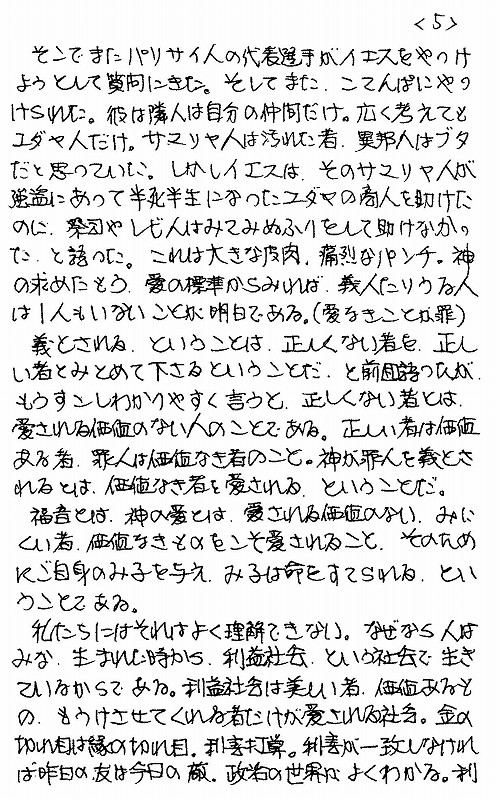 <5>
そこでまたパリサイ人の代表選手がイエスをやっけ
ようとして質問にきた。そしてまた、こてんぱにやっ
けられた。彼は隣人は自分の仲間だけ。広く考えても
ユダヤ人だけ。サマリヤ人は汚れた者、異邦人はブタ
だと思っていた。しかしイエスは、そのサマリヤ人が
強盗にあって半死半生になったユダヤの商人を助けた
のに、祭司やレビ人はみてみぬふりをして助けなかっ
た、と語った。これは大きな皮肉、痛烈なパンチ。神
の求めたもう、愛の標準からみれば、義人たりうる人
は1人もいないことが明白である。(愛なきことが罪)
義とされる、ということは、正しくない者を、正し
い者とみとめて下さるということだ、と前回語ったが、
もうすこしわかりやすく言うと、正しくない者とは、
愛される価値のない人のことである。正しい者は価値
ある者、罪人は価値なき者のこと。神が罪人を義とさ
れるとは、価値なき者を愛される、ということだ。
福音とは、神の愛とは、愛される価値のない、みに
くい者、価値なきものをこそ愛されること、そのため
にご自身のみ子を与え、み子は命をすてられる、とい
うことである。
私たちにはそれはよく理解できない。なぜなら人は
みな、生まれた時から、利益社会、という社会で生き
ているからである。利益社会は美しい者、価値あるも
の、もうけさせてくれる者だけが愛される社会。金の
切れ目は縁の切れ目。利害打算。利害が一致しなけれ
ば昨日の友は今日の敵、政治の世界がよくわかる。利